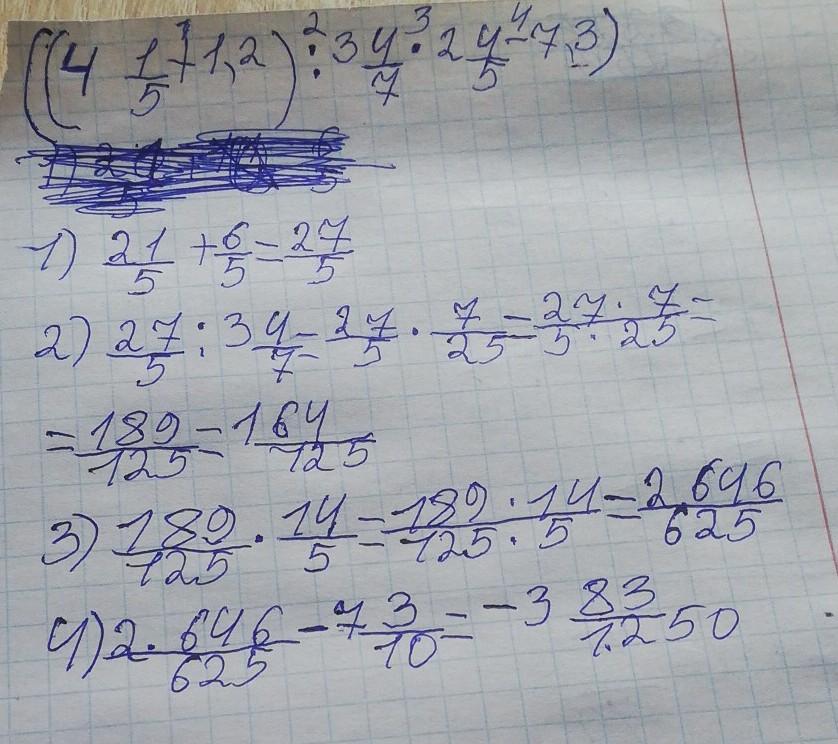 ((4 1/5 + 1,2) : 3 4/7 · 2 4/5 - 7,3)
1) 21/5 + 6/5 = 27/5
2) 27/5 : 3 4/7 = 27/5 · 7/25 = 27 · 7/5 · 25 =
= 189/125 = 1 64/125
3) 189/125 · 14/5 = 189 · 14/125 · 5 = 2.646/625
4) 2.646/625 - 7 3/10 = -3 83/1.250